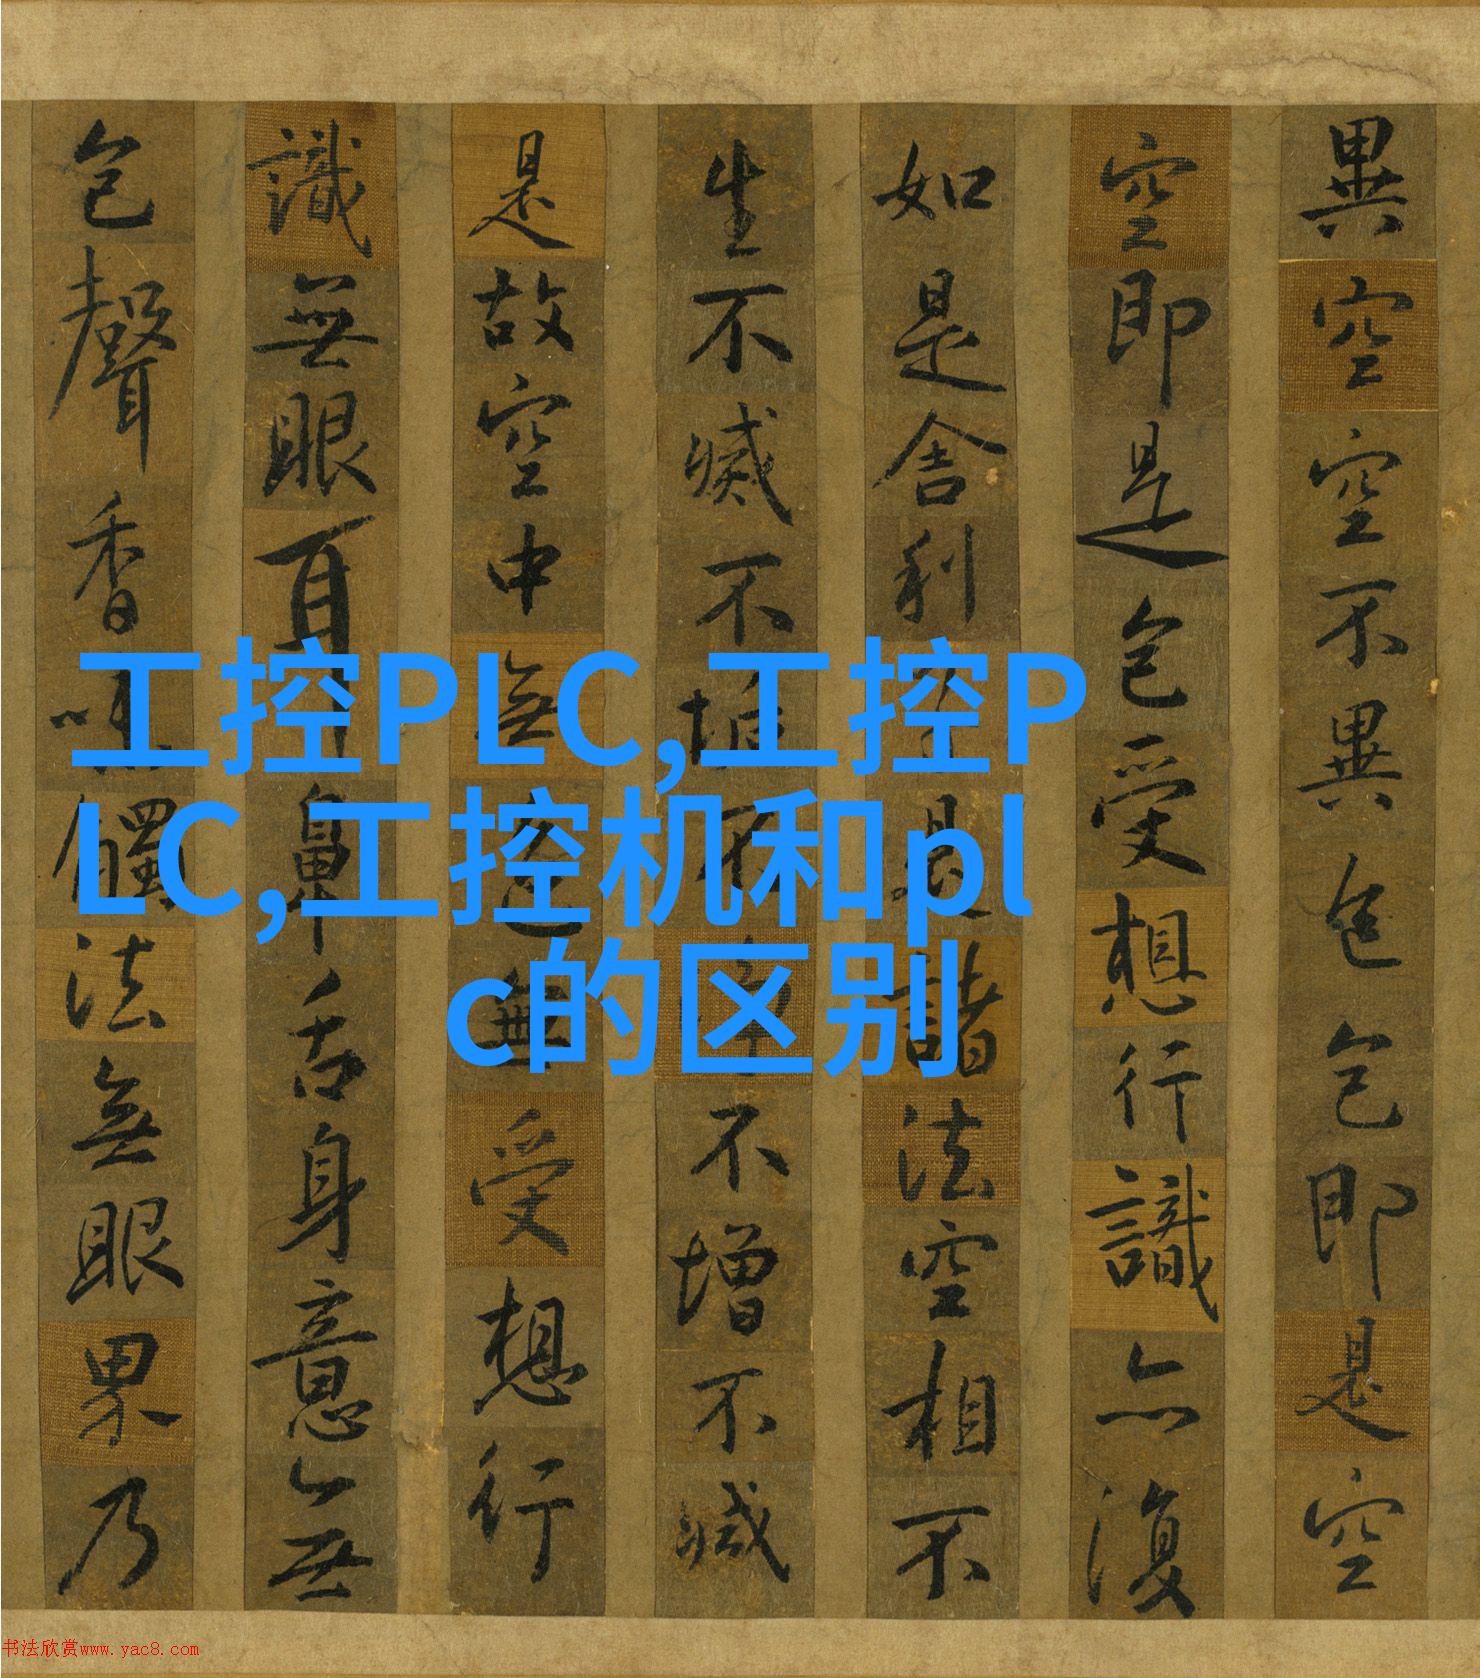 工控PLC,工控P
LC,工控机和pl
c的区别
異空空不異色色即是空
空即是色受想行識亦復
如是舍利子是諸法空相不
生不滅不垢不淨不增不減
是故空中無色無受想行
識無眼耳鼻舌身意無
色聲香味觸法無眼界乃
书法欣赏www.yac8.com